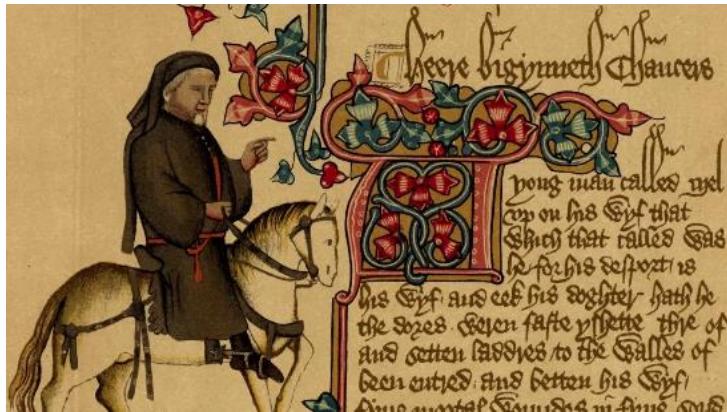 Heere bigynneth Chaucers
A yong man called mel
vp on his wyf that
which that called was
he for his desport is
his wyf and eek his doghter hath he
the dores weren faste yshette thre of
and setten laddres to the walles of
been entred and betten his wyf